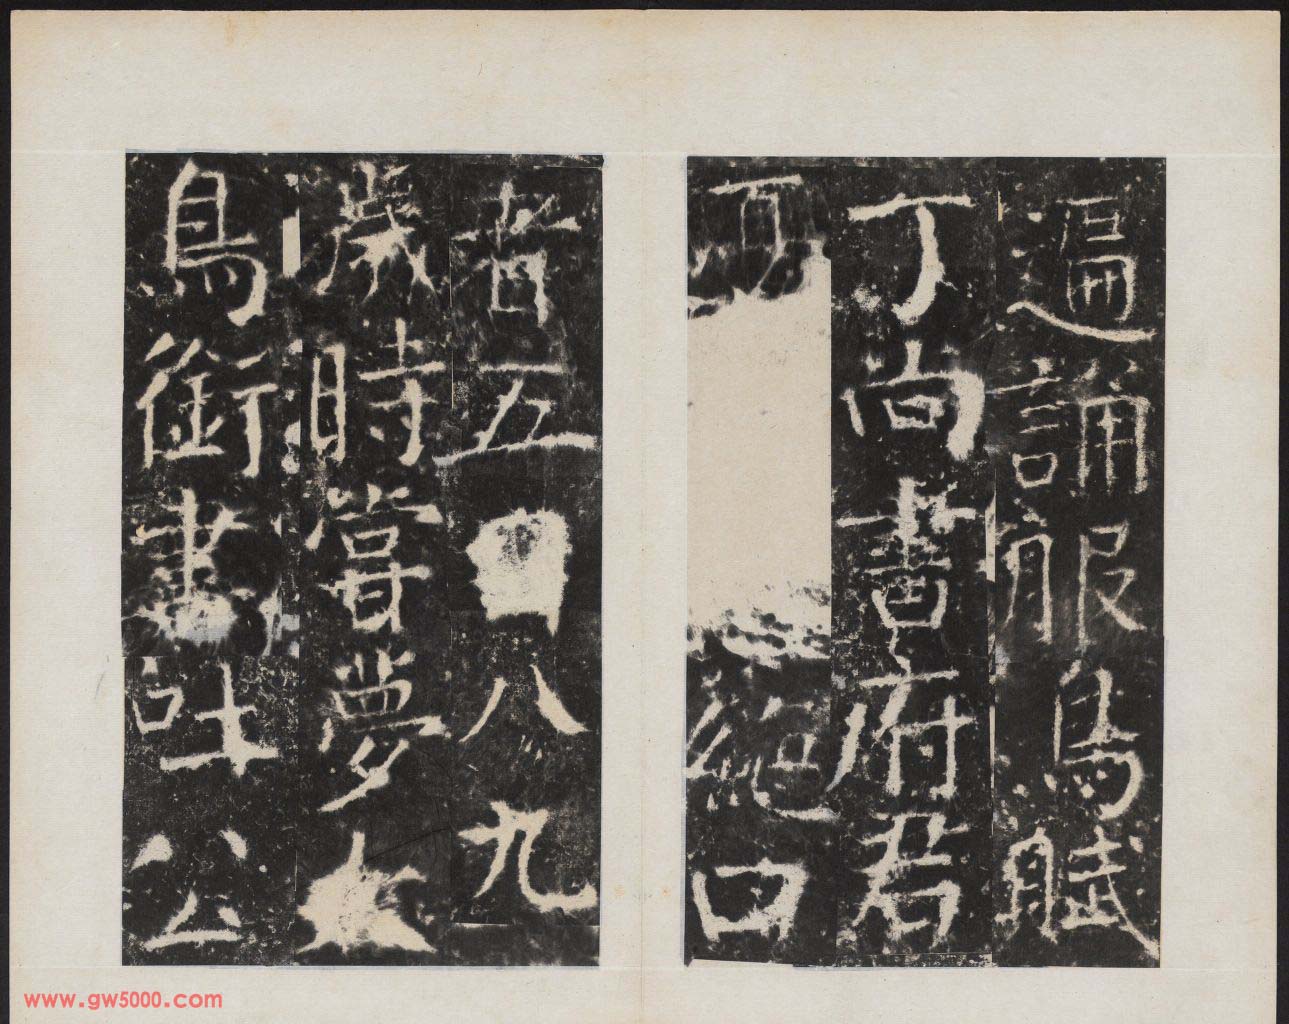 逼誦服鳥賦
丁尚書府君
可絕口
者五四八九
歲時嘗夢
鳥銜書吐公
www.gw5000.com